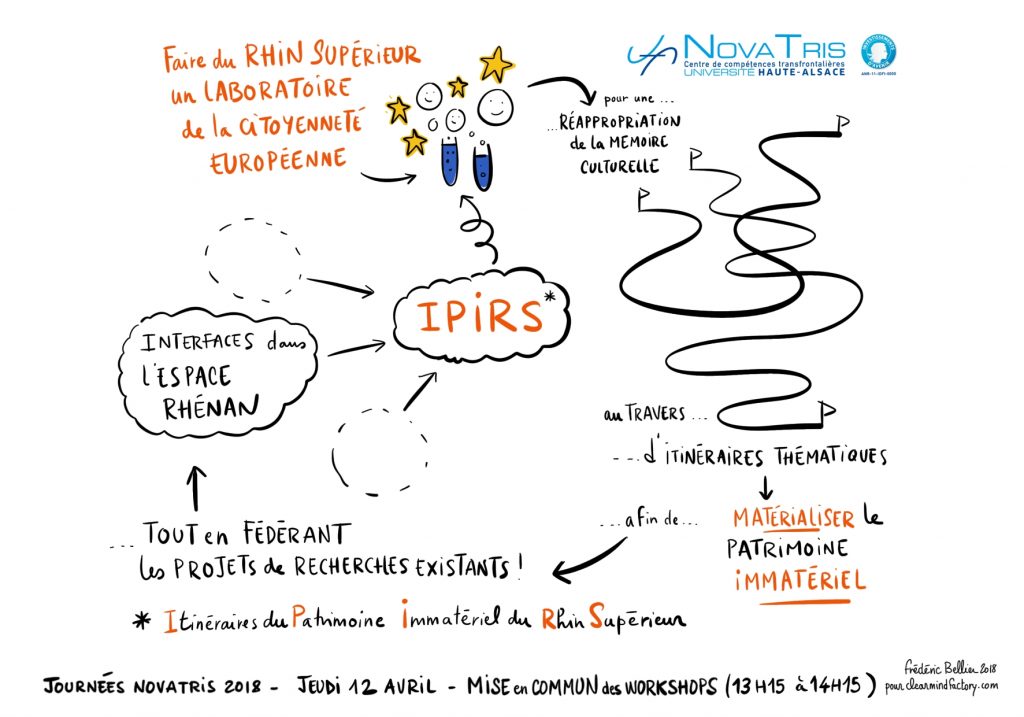 Faire du RHIN SUPÉRIEUR
un LABORATOIRE
de la CITOYENNETÉ
EUROPÉENNE
NOVATRIS
Centre de compétences transfrontalières
UNIVERSITÉ HAUTE-ALSACE
INVESTISSEMENTS D'AVENIR
ANR-11-IDFI-0005
pour une ...
...RÉAPPROPRIATION
de la MÉMOIRE
CULTURELLE
IPIRS*
INTERFACES dans
L'ESPACE
RHÉNAN
au TRAVERS ...
... d'ITINÉRAIRES THÉMATIQUES
...afin de...
MATÉRIALISER le
PATRIMOINE
IMMATÉRIEL
... TOUT en FÉDÉRANT
les PROJETS de RECHERCHES EXISTANTS !
* Itinéraires du Patrimoine immatériel du Rhin Supérieur
JOURNÉES NOVATRIS 2018 - JEUDI 12 AVRIL - MISE en COMMUN des WORKSHOPS (13H15 à 14H15)
frédéric Bellier 2018
pour clearmindfactory.com